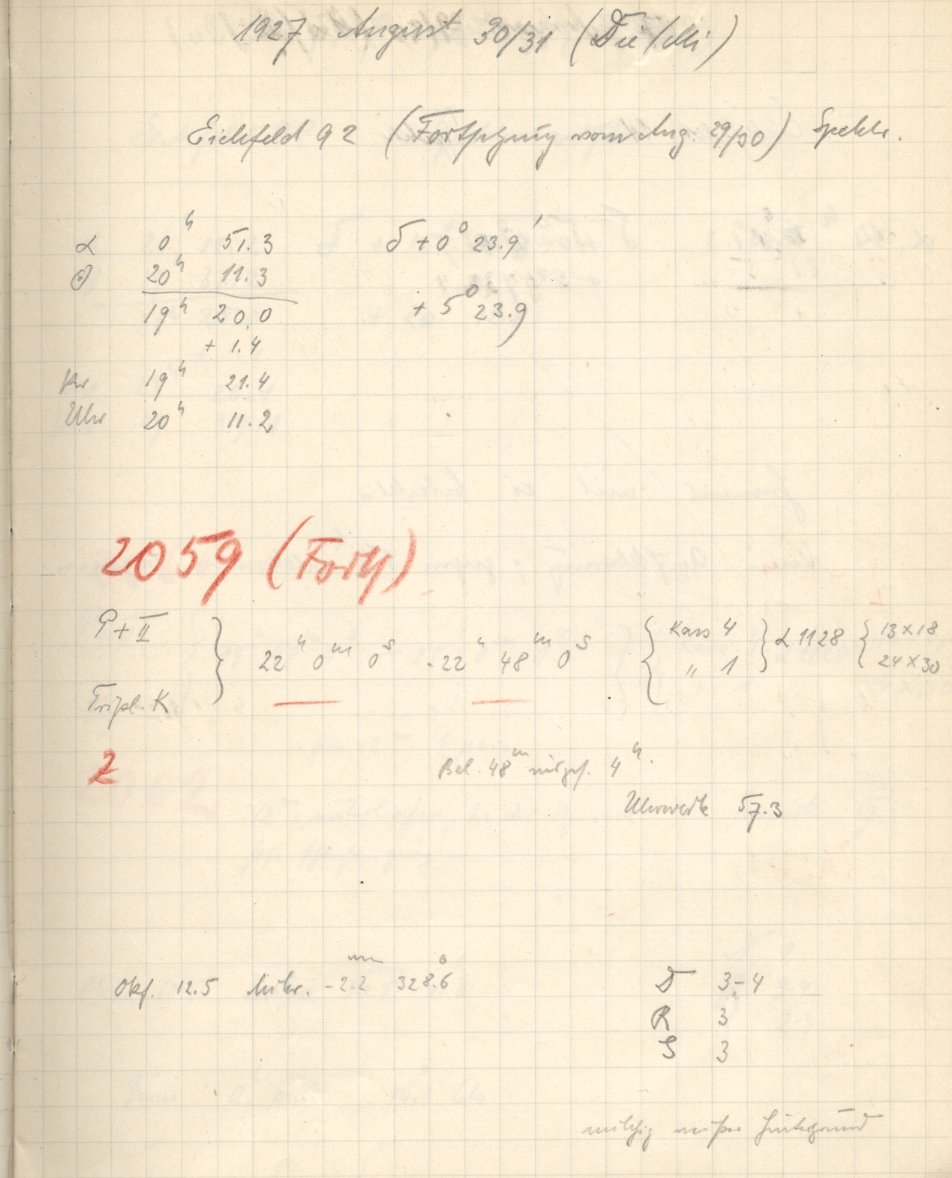 1927 August 30/31 (Die/Mi)
Eichfeld 92 (Fortsetzung vom Aug. 29/30) Spektr.
α 0ʰ 51.3 δ + 0° 23.9'
⊙ 20ʰ 11.3
19ʰ 20.0 + 5° 23.9
+ 1.4
Kr 19ʰ 21.4
Uhr 20ʰ 11.2
2059 (Forts)
P + II
Tripl. K
} 22ʰ 0ᵐ 0ˢ - 22ʰ 48ᵐ 0ˢ { Kass 4 } α 1128 { 13 x 18
" 1 24 x 30
Z Bel. 48ᵐ 4ʰ.
Uhrwerk 57.3
Okf. 12.5 Mikr. - 2.2ᵐᵐ 328.6°
D 3-4
R 3
S 3
milchig weißer Hintergrund